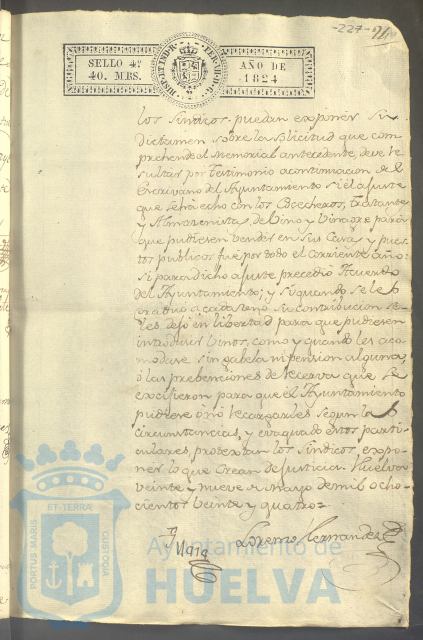 -227-
SELLO 4º
40. MRS.
HISP. ET IND. R. FERD. VII D. G.
AÑO DE
1824
los Sindicos puedan exponer su
dictamen sobre la solicitud que com
prehende el Memorial antecedente, deve re
sultar por Testimonio acontinuacion de el
Escrivano del Ayuntamiento si el ajuste
que se ha echo con los Cosecheros, tratantes
y Almacenistas de Vino y Vinagre para
que pudiesen vender en sus Casas y pues
tos publicos fue por todo el corriente año:
si para dicho ajuste precedio Acuerdo
del Ayuntamiento; y si quando se le
a cada uno su contribucion se
les dejó en livertad para que pudiesen
introducir Vinos, como y quando les aco
modase sin gabela ni pension alguna
ó las prebenciones de recerva que se
para que el Ayuntamiento
pudiese ó nó recargarles segun las
circunstancias, y evaquado estos parti
culares, protextan los Sindicos, expo
ner lo que crean de justicia. Huelva
veinte y nueve de Mayo de mil ocho
cientos veinte y quatro=
Lorenzo Hernandez
PORTUS MARIS ET TERRÆ CUSTODIA
Ayuntamiento de
HUELVA